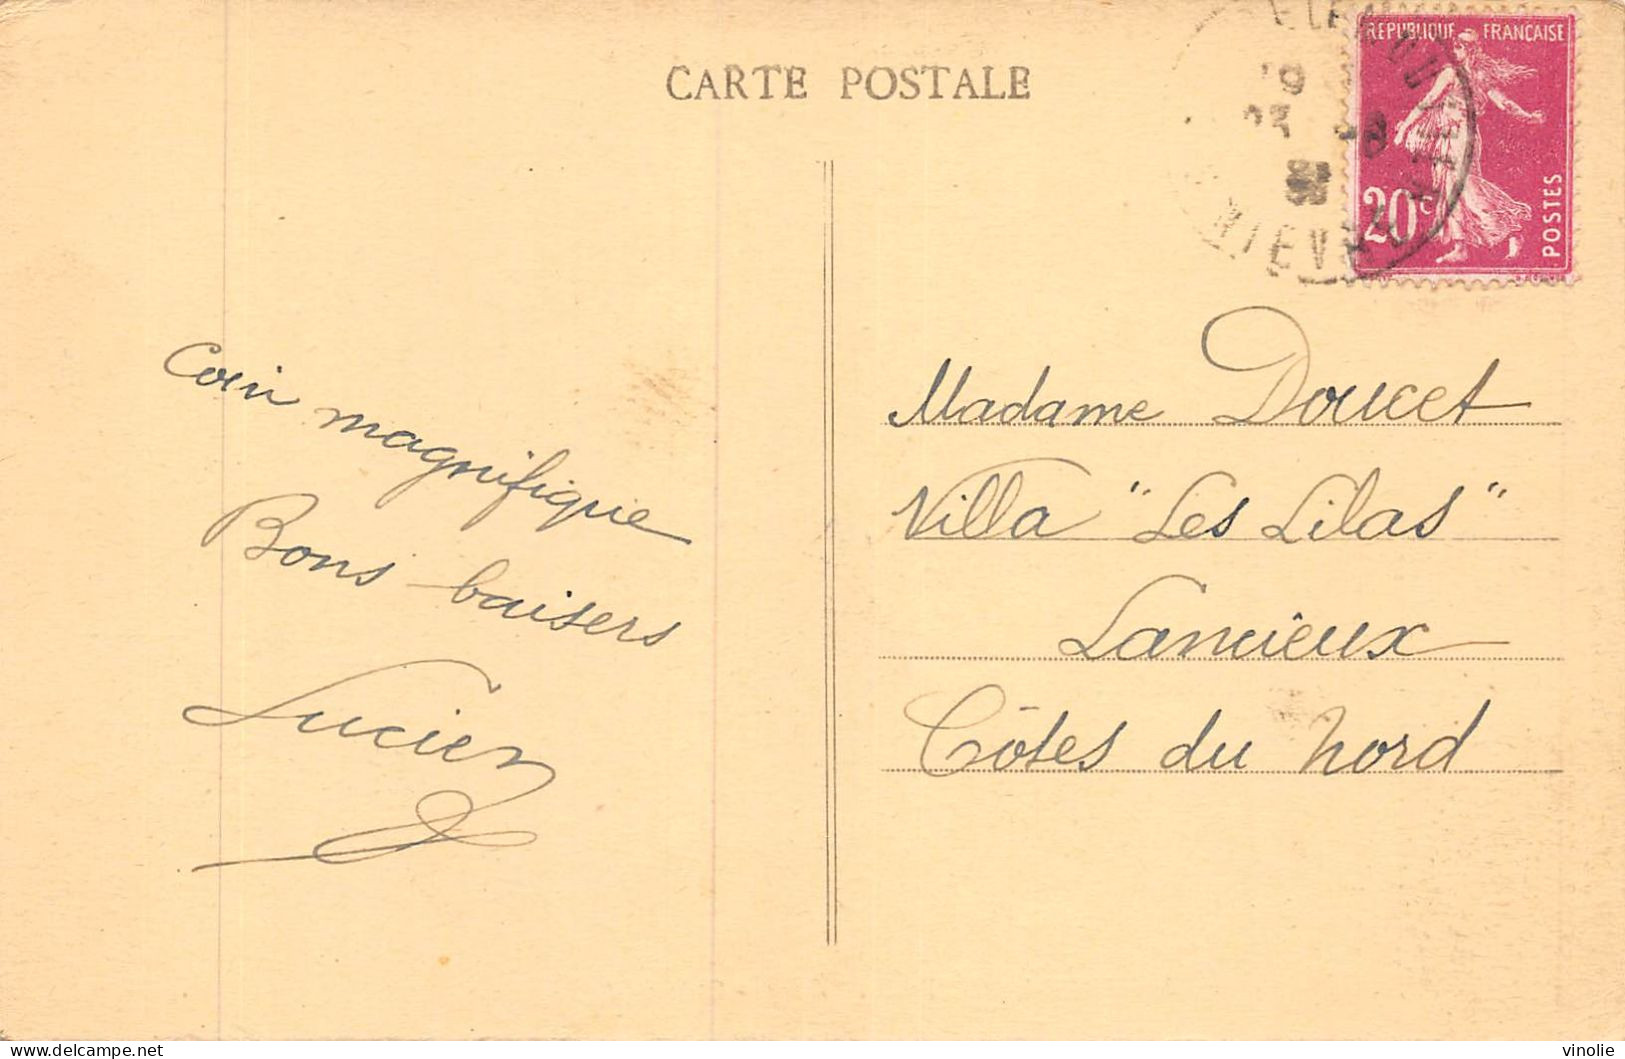 CARTE POSTALE
REPUBLIQUE FRANÇAISE
20c
POSTES
NIEVRE
Coin magnifique
Bons baisers
Lucien
Madame Doucet
Villa "Les Lilas"
Lancieux
Côtes du Nord
delcampe.net
vinolie